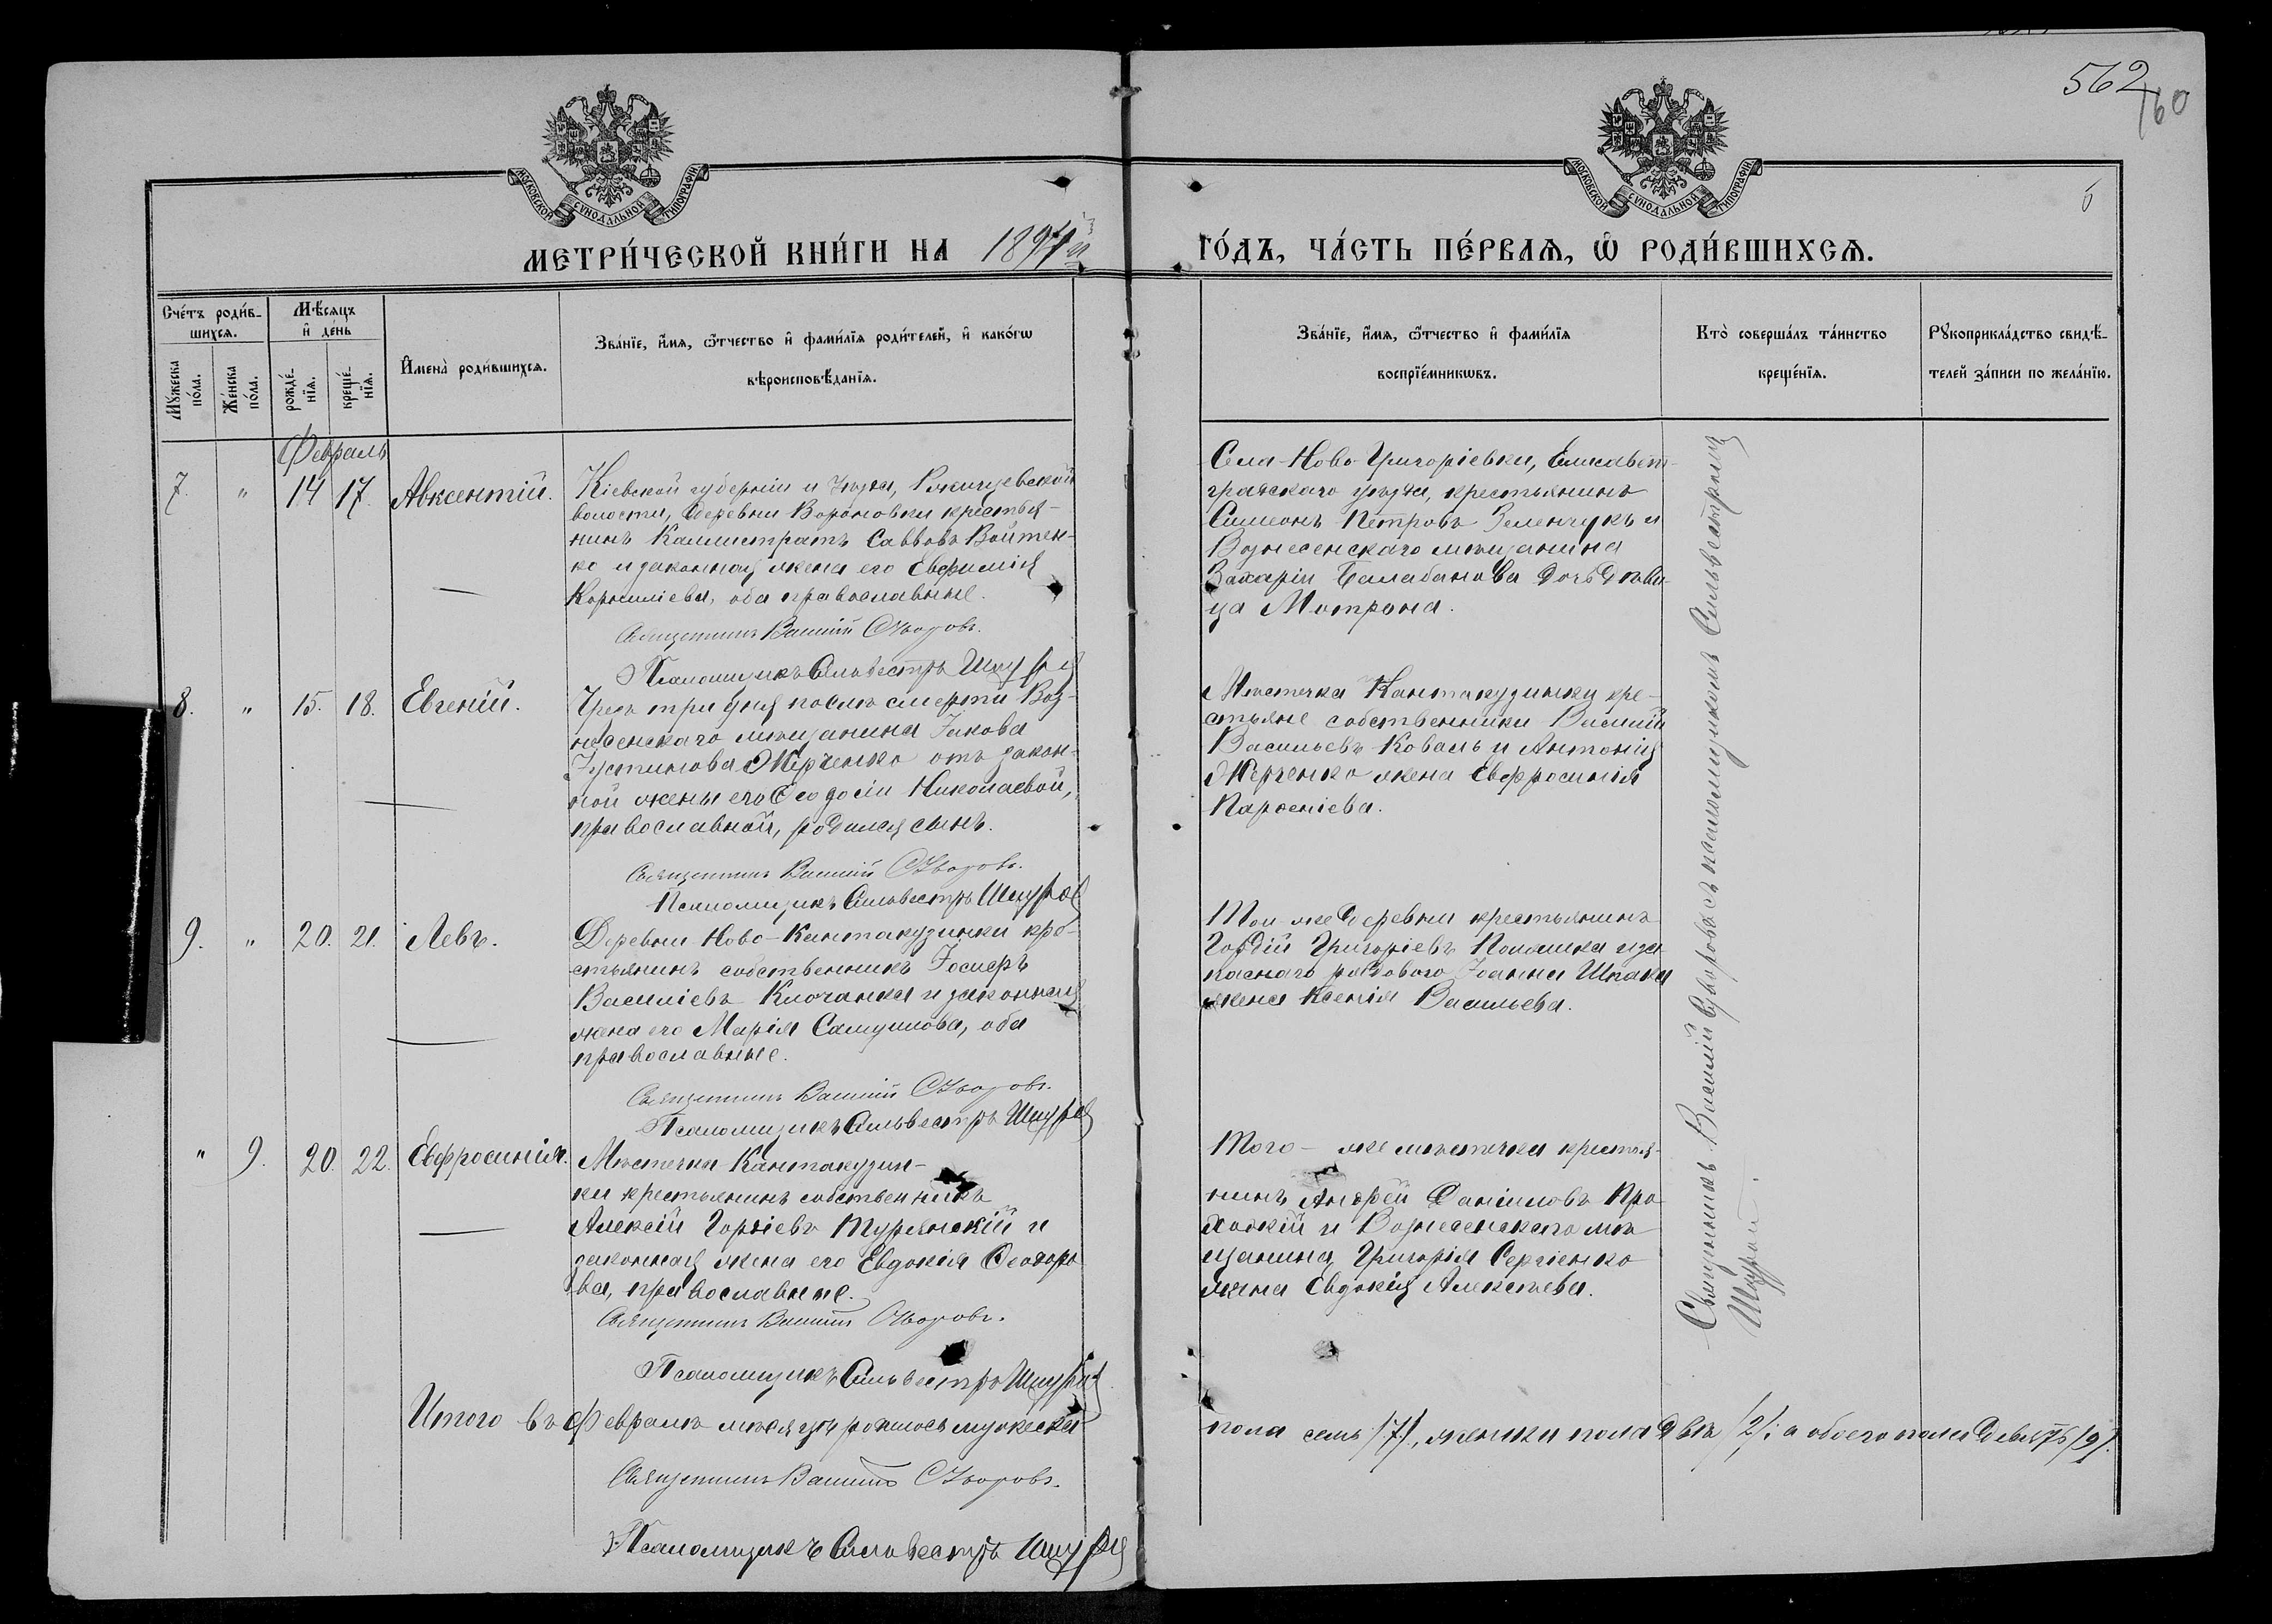 562
160
6
МОСКОВСКОЙ СУНОДАЛЬНОЙ ТИПОГРАФІИ
МОСКОВСКОЙ СУНОДАЛЬНОЙ ТИПОГРАФІИ
МЕТРИ́ЧЕСКОЙ КНИ́ГИ НА 1894 й ГО́ДЪ, ЧА́СТЬ ПЕ́РВАѦ, Ѡ РОДИ́ВШИХСѦ.
Сче́тъ роди́вшихсѧ.
Мꙋ́жеска по́ла.
Же́нска по́ла.
Мѣ́сѧцъ и҆ де́нь
рожде́нїѧ.
креще́нїѧ.
И҆мена̀ роди́вшихсѧ.
Зва́нїе, и҆́мѧ, ѻ҆́тчество и҆ фами́лїѧ роди́телей, и҆ како́гѡ
вѣроисповѣ́данїѧ.
Зва́нїе, и҆́мѧ, ѻ҆́тчество и҆ фами́лїѧ
воспрїе́мникѡвъ.
Кто̀ соверша́лъ та́инство
креще́нїѧ.
Рꙋкоприкла́дство свидѣ́-
телей за́писи по жела́нїю.
Февраль
7. " 14 17. Авксентій.
Кіевской губерніи и уѣзда,
волости, деревни Вороновки крестья-
нинъ Каллистратъ Саввовъ Войтен-
ко и законная жена его Евфимія
Корниліева, оба православные.
Священникъ Василій Суворовъ.
Псаломщикъ Сильвестръ Шкура
Села Ново-Григоріевки, Елисавет-
градскаго уѣзда, крестьянинъ
Симеонъ Петровъ Зеленчукъ и
Вознесенскаго мѣщанина
Захаріи Балабанова дочь дѣви-
ца Мотрона.
8. " 15. 18. Евгеній.
Чрезъ три дня послѣ смерти Воз-
несенскаго мѣщанина Іакова
Іустинова Жерченко отъ закон-
ной жены его Ѳеодосіи Николаевой,
православной, родился сынъ.
Священникъ Василій Суворовъ.
Псаломщикъ Сильвестръ Шкура
Мѣстечка Кантакузинки кре-
стьяне собственники Василій
Васильевъ Коваль и Антонія
Жерченко жена Евфросинія
Парѳеніева.
9. " 20. 21. Левъ.
Деревни Ново-Кантакузинки кре-
стьянинъ собственникъ Іосифъ
Василіевъ Клочанка и законная
жена его Марія Самуилова, оба
православные.
Священникъ Василій Суворовъ.
Псаломщикъ Сильвестръ Шкура
Той же деревни крестьянинъ
Гордій Григоріевъ и за-
паснаго рядового Іоанна Шпака
жена Ксенія Васильева.
" 9. 20. 22. Евфросинія.
Мѣстечка Кантакузин-
ки крестьянинъ собственникъ
Алексій Турянскій и
законная жена его Евдокія Ѳеодоро-
ва, православные.
Священникъ Василій Суворовъ.
Псаломщикъ Сильвестръ Шкура
Того-же мѣстечка крестья-
нинъ Андрей Даніиловъ
и Вознесенскаго мѣ-
щанина Григорія Сергіенко
жена Евдокія Алексѣева.
Священникъ Василій Суворовъ съ псаломщикомъ Сильвестромъ
Шкурой.
Итого въ Февралѣ мѣсяцѣ родилось мужеска пола семь /7/, женска пола двѣ /2/; а обоего пола девять /9/.
Священникъ Василій Суворовъ.
Псаломщикъ Сильвестръ Шкура